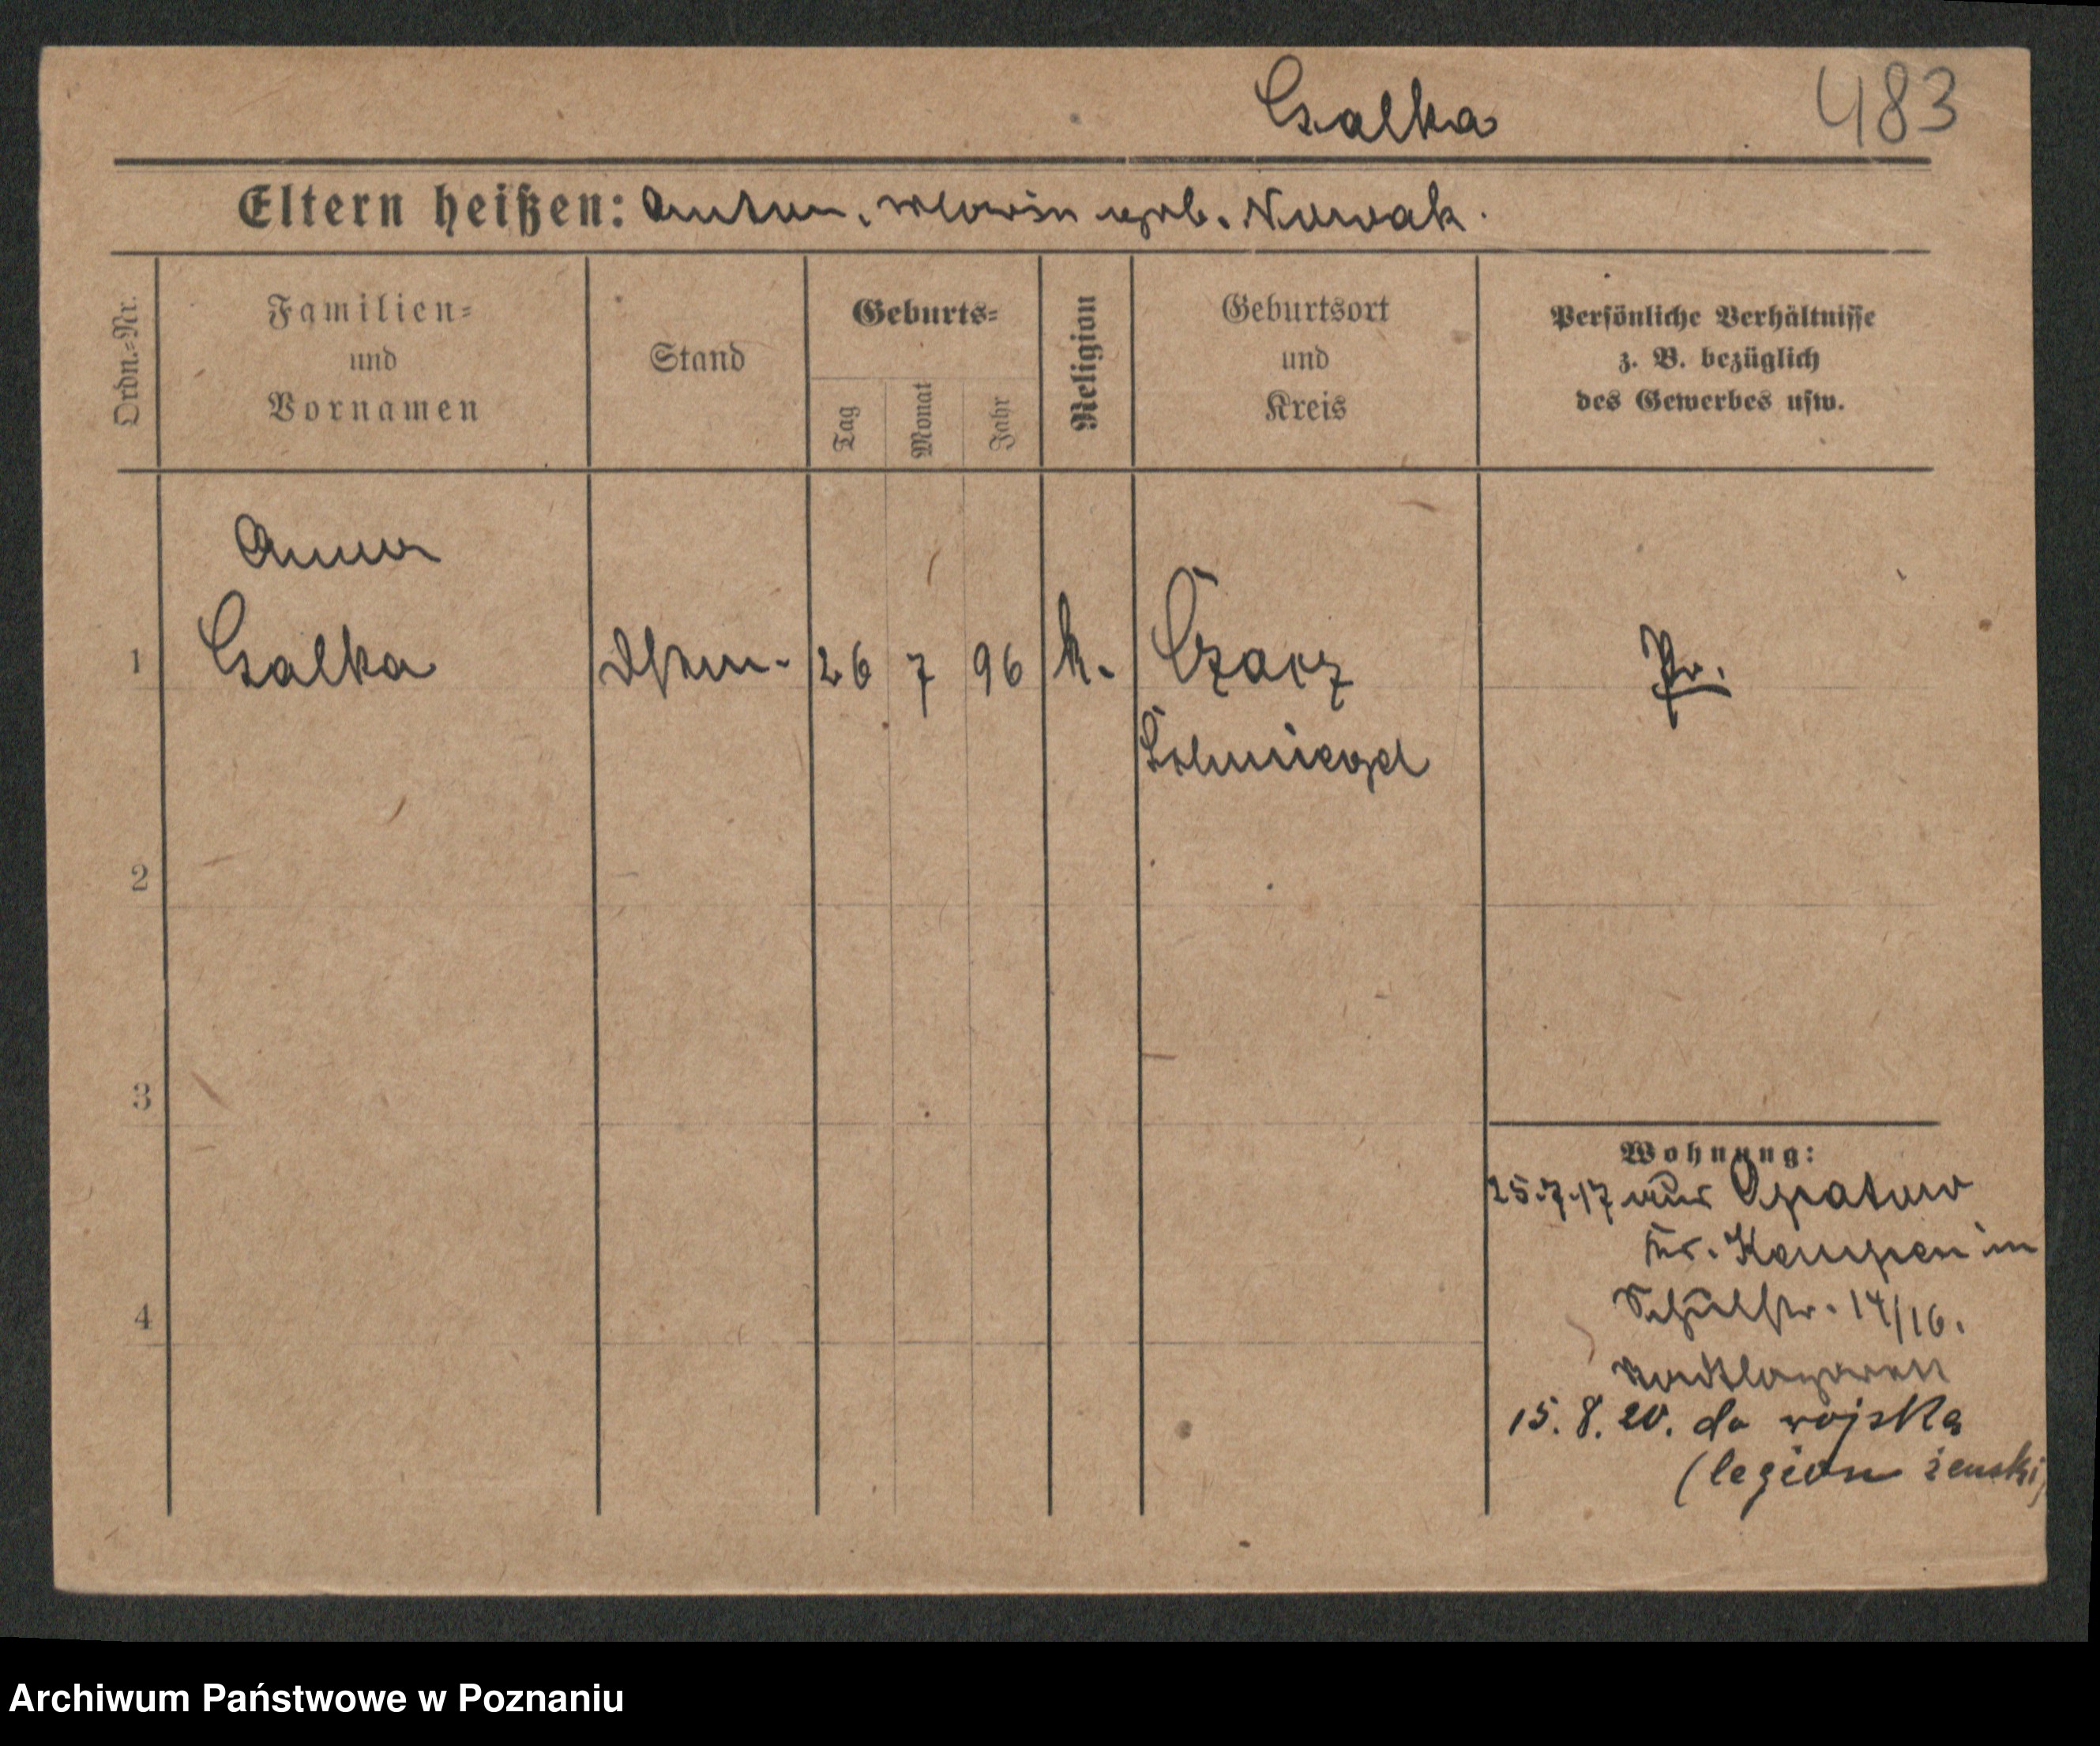 Czalka 483
Eltern heißen: Anton, Maria geb. Nowak.
Ordn.=Nr.
Familien=
und
Vornamen
Stand
Geburts=
Tag
Monat
Jahr
Religion
Geburtsort
und
Kreis
Persönliche Verhältnisse
z. B. bezüglich
des Gewerbes usw.
Anna
1 Czalka 26 7 96 k. Czacz Pr.
Schmiegel
2
3
4
Wohnung:
25.7.17 aus Opatow
Kr. Kempen in
Schulstr. 14/16.
15.8.20. do wojska
(legion żenski)
Archiwum Państwowe w Poznaniu